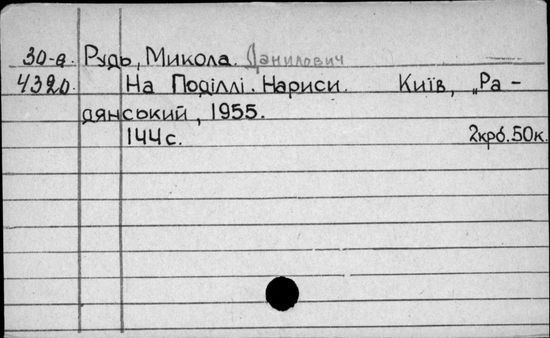 30-а Рудь, Микола Данилович
4320. На Поділлі. Нариси. Київ, „Ра-
дянський, 1955.
144с. 2крб.50к.